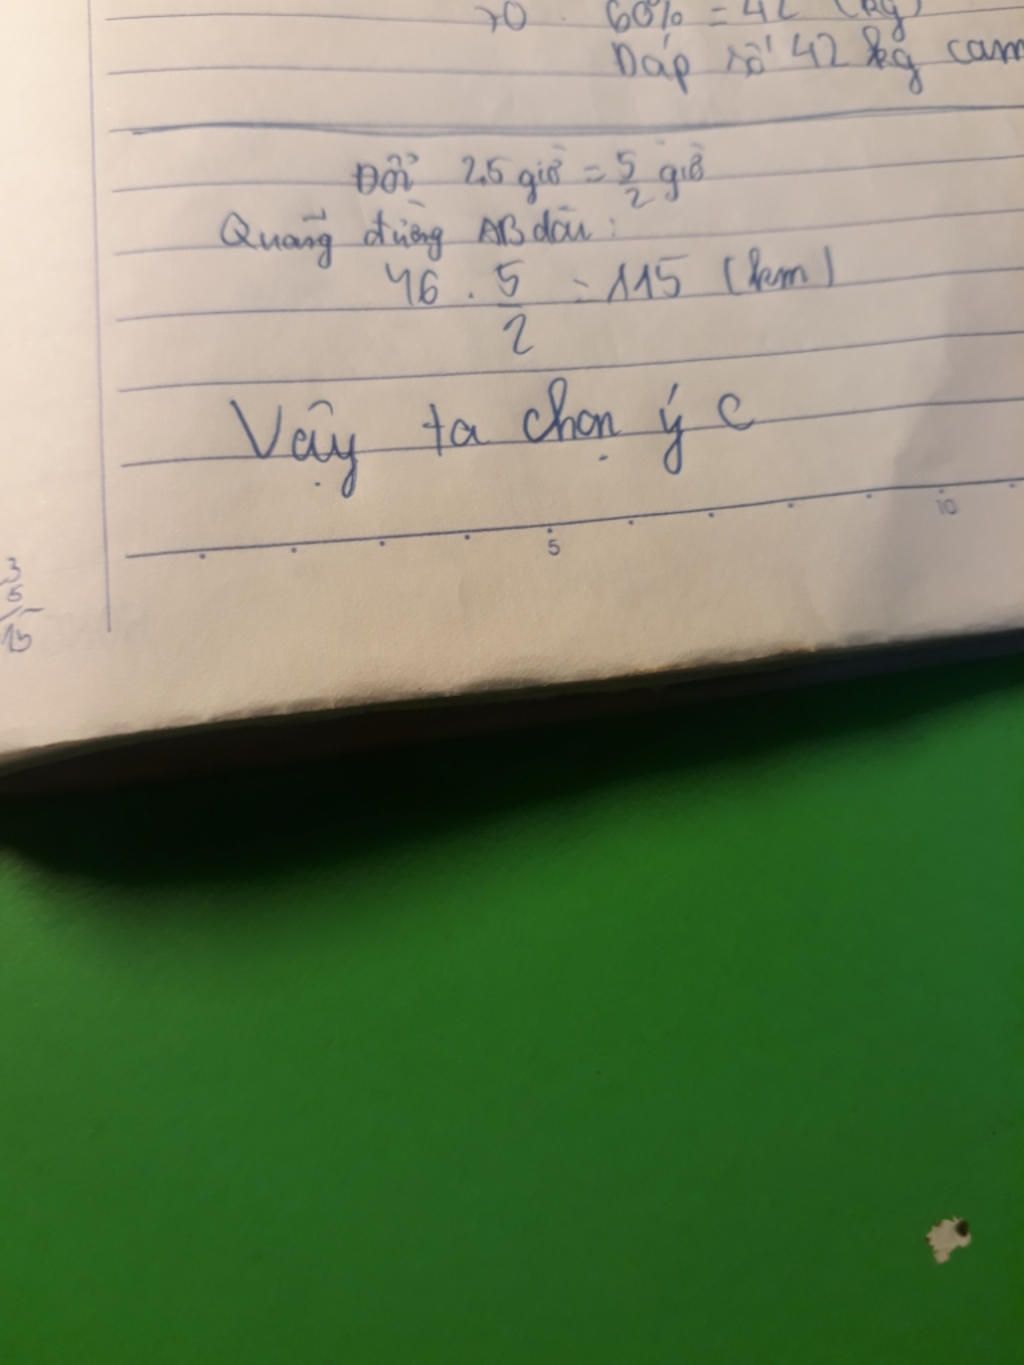 70 . 60% = 42 (kg)
Đáp số 42 kg cam
Đổi 2,5 giờ = 5/2 giờ
Quãng đường AB dài:
46 . 5/2 = 115 (km)
Vậy ta chọn ý C
5 10
3
5
15